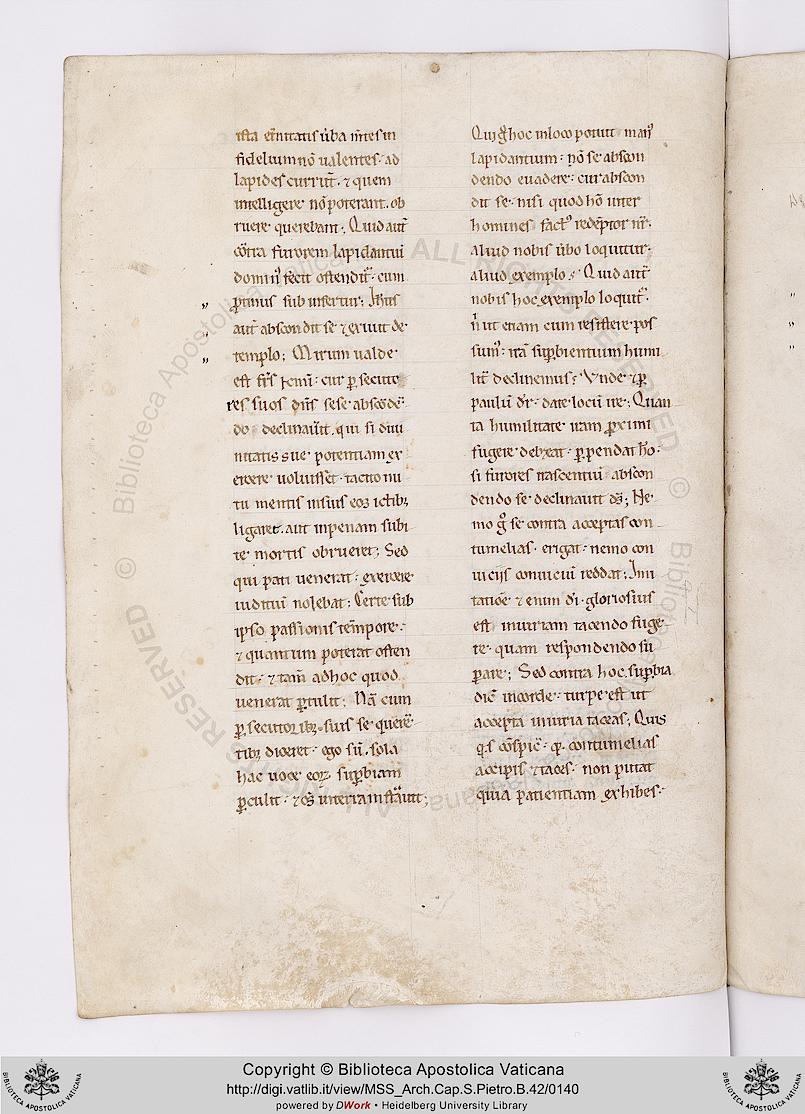 ista et̄nitatis ūba m̄tes in
fidelium nō ualentes. ad
lapides currūt. & quem
intelligere nō poterant. ob
ruere querebant. Quid aut̄
cōtra furorem lapidantiū
domin' fecit ostendit̄. cum
ꝓtinus sub infertur. Ih̄us
aut̄ abscondit se & exiuit de
templo; Mirum ualde
est fr̄s kc̄mi. cur ꝑsecuto
res suos dn̄s sese abscōdē
do declinauit. qui si diui
nitatis sue potentiam ex
ercere uoluisset. tacito nu
tu mentis in suis eoꝝ ictibꝫ
ligaret. aut in penam subi
te mortis obrueret; Sed
qui pati uenerat. exercere
iuditiū nolebat; Certe sub
ipso passionis tēmpore.
& quantum poterat osten
dit. & tam̄ ad hoc quod
uenerat ꝑtulit; Nā cum
ꝑsecutoribꝫ suis se querē
tibꝫ diceret. ego sū. sola
hac uoce eoꝝ suꝑbiam
ꝑculit. & oms̄ in terram strauit;
Qui g̊ hoc in loco potuit man'
lapidantium. nō se abscon
dendo euadere. cur abscon
dit se. nisi quod hō inter
homines fact' redēptor nr̄.
aliud nobis ūbo loquitur.
aliud exemplo. Quid aut̄
nobis hoc exemplo loquit̄.
n̄ ut etiam cum resistere pos
sum'. irā suꝑbientium humi
lit̄ declinemus. Vnde & ꝑ
paulū dr̄. date locū ire; Quan
ta humilitate iram ꝓximi
fugere debeat. ꝑpendat hō.
si furores irascentiū abscon
dendo se declinauit ds̄; Ne
mo g̊ se contra acceptas con
tumelias. erigat. nemo con
uicijs conuiciū reddat; Imi
tatiōe & enim di̅. gloriosius
est iniuriam tacendo fuge
re. quam respondendo sū
ꝑare; Sed contra hoc. suꝑbia
dic̄ in corde. turpe est ut
accepta iniuria taceas; Quis
qs cōspic̄. qꝫ contumelias
accipis & taces. non putat
quia patientiam exhibes.
Copyright © Biblioteca Apostolica Vaticana
http://digi.vatlib.it/view/MSS_Arch.Cap.S.Pietro.B.42/0140
powered by DWork • Heidelberg University Library